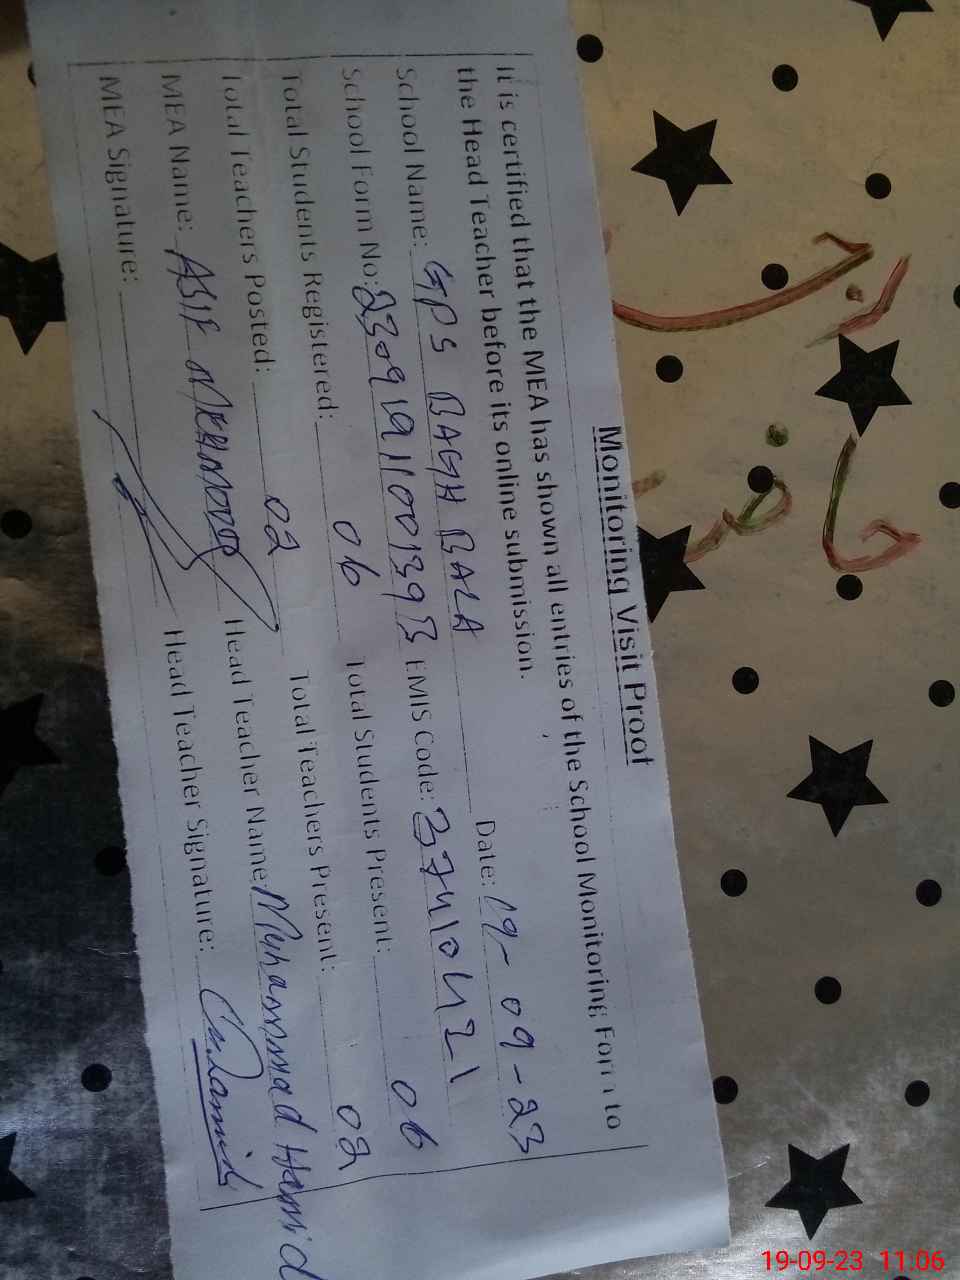 Monitoring Visit Proof
It is certified that the MEA has shown all entries of the School Monitoring Form to
the Head Teacher before its online submission.
School Name: GPS BAGH BALA Date: 19-09-23
School Form No: EMIS Code: 37410421
Total Students Registered: 06 Total Students Present: 06
Total Teachers Posted: 02 Total Teachers Present: 02
MEA Name: ASIF MEHMOOD Head Teacher Name: Muhammad Hamid
MEA Signature: Head Teacher Signature:
19-09-23 11:06